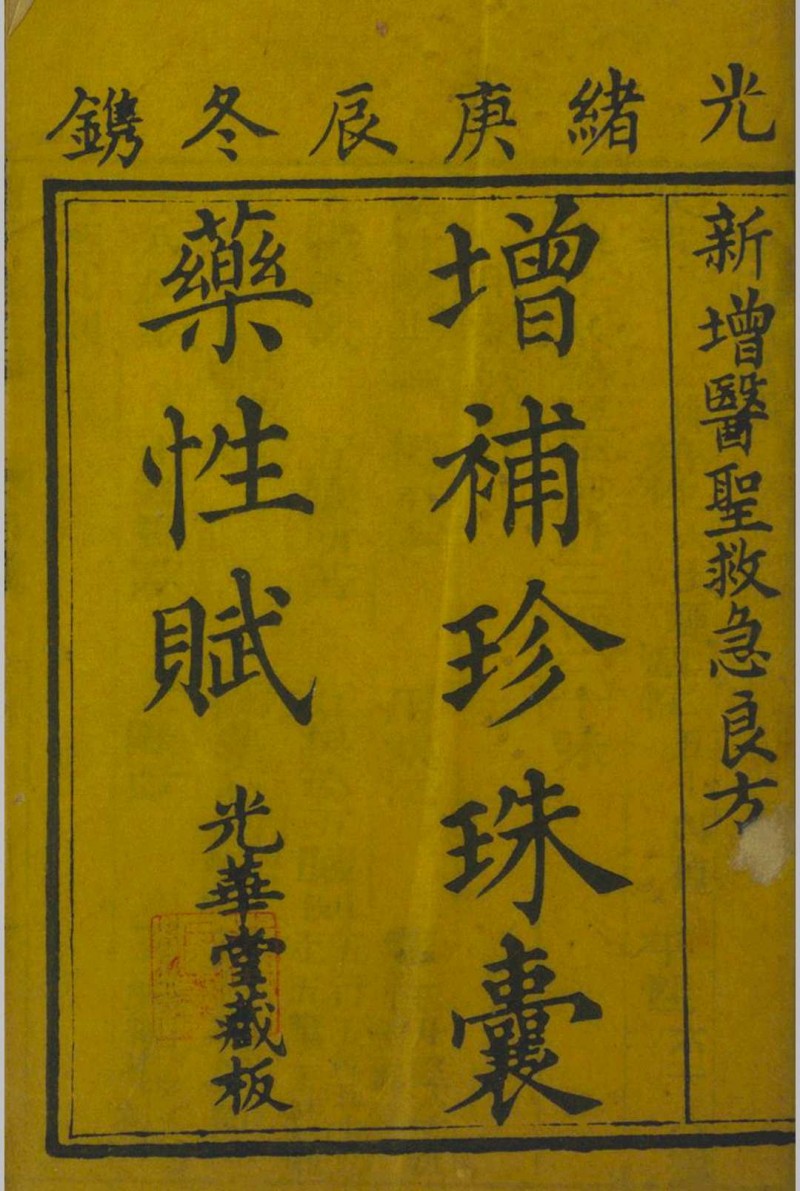 光緒庚辰冬鐫
新增醫聖救急良方
增補珍珠囊
藥性賦
光華堂藏板